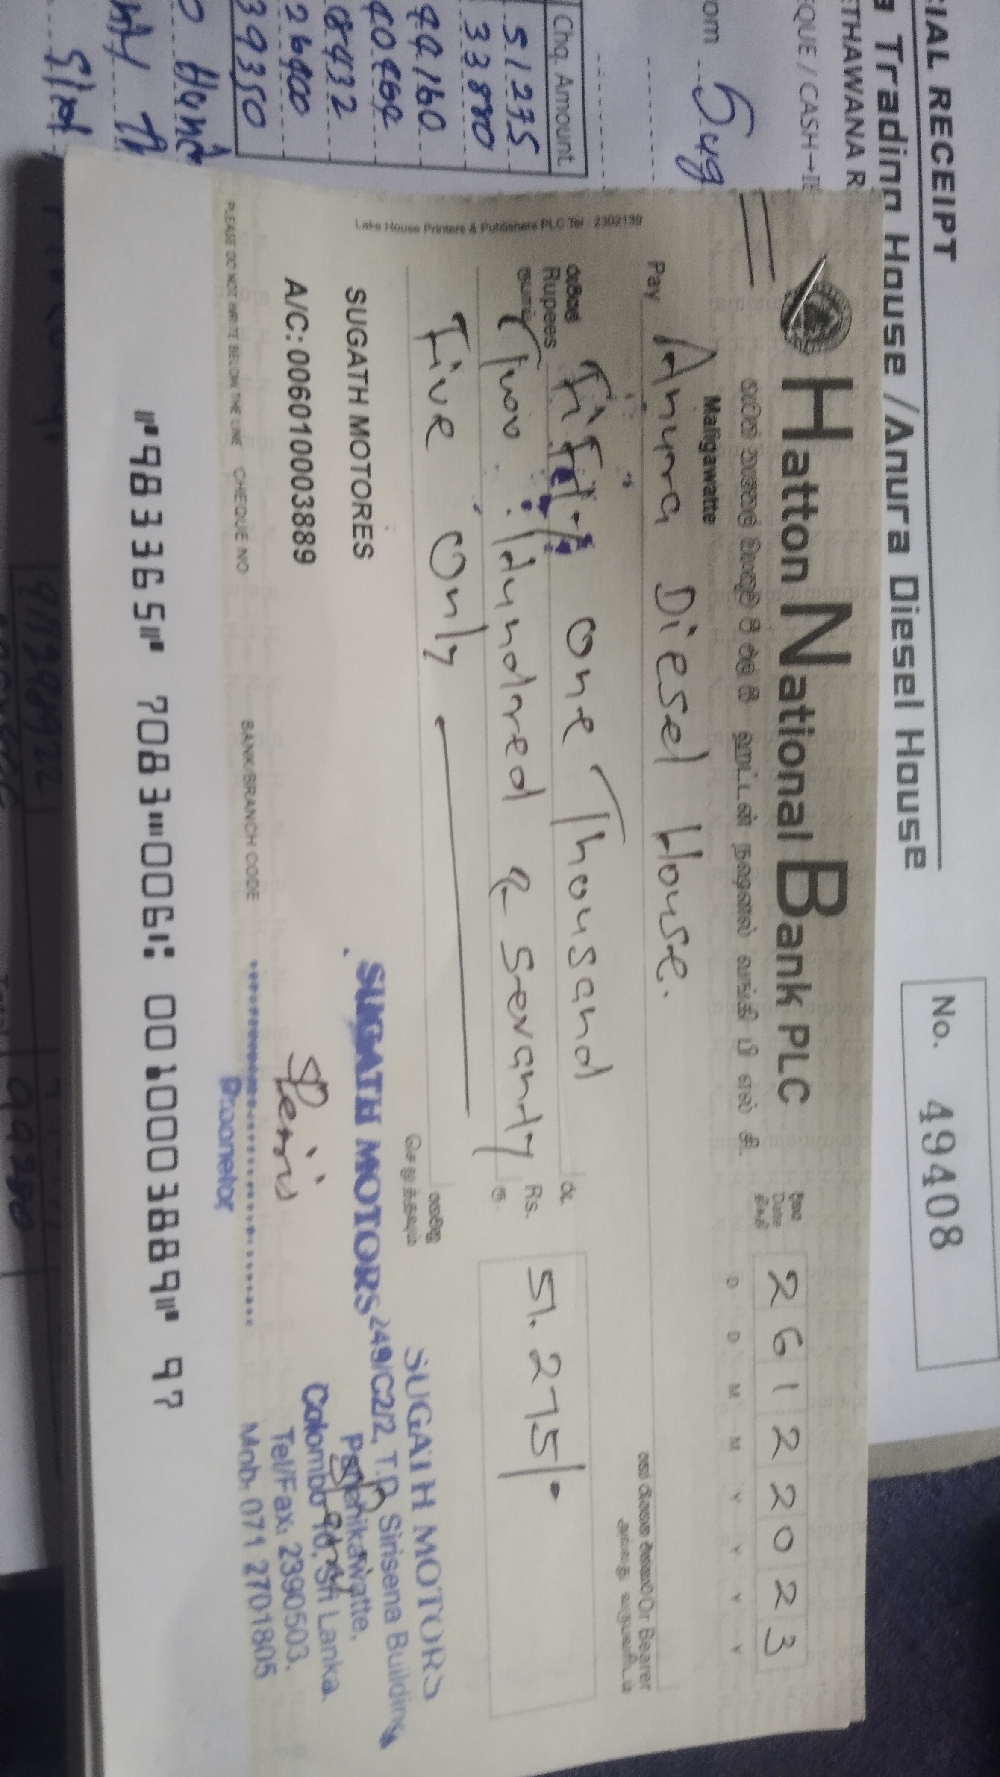 CIAL RECEIPT
Trading House / Anura Diesel House
No. 49408
THAWANA R
QUE / CASH
om Sug
Chq. Amount
51275
33880
44160
26400
39350
Hatton National Bank PLC
හැටන් නැෂනල් බැංකුව පී එල් සී ஹட்டன் நஷனல் வங்கி பி எல் சி
Maligawatte
Date
26122023
D D M M Y Y Y Y
Pay Anura Diesel House.
Or Bearer
රුපියල්
Rupees
ரூபாய்
Fifty one Thousand
Two Hundred & Sevanty
Five Only
Rs. 51.275/-
Lake House Printers & Publishers PLC Tel : 2302139
SUGATH MOTORES
A/C: 006010003889
SUGATH MOTORS
Proprietor
SUGATH MOTORS
249/C2/2, T.D. Sirisena Building,
Panchikawatte,
Colombo 10, Sri Lanka.
Tel/Fax: 2390503.
Mob: 071 2701805
PLEASE DO NOT WRITE BELOW THE LINE CHEQUE NO BANK/BRANCH CODE
⑈983365⑈ 7083⑉006⑆ 0010003889⑈ 97